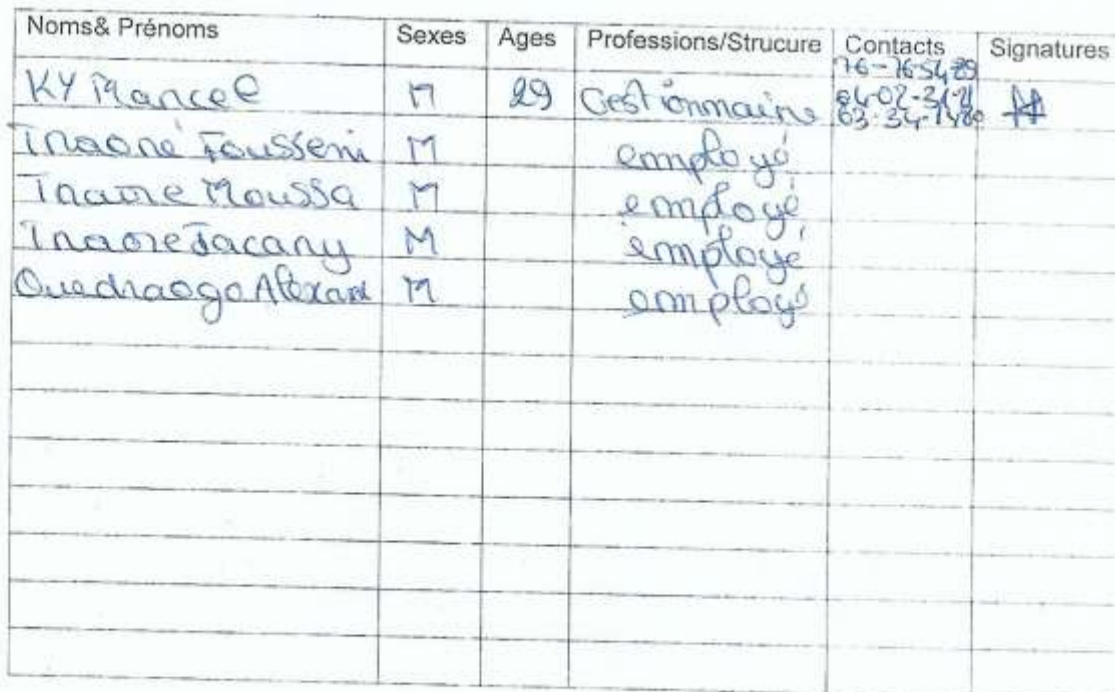 Noms& Prénoms Sexes Ages Professions/Strucure Contacts Signatures
76-76-54-89
KY Marcel M 29 Gestionnaire
Traoré Fousseni M employé
Traore Moussa M employé
Traore Jacany M employé
Ouedraogo Alexand M employé